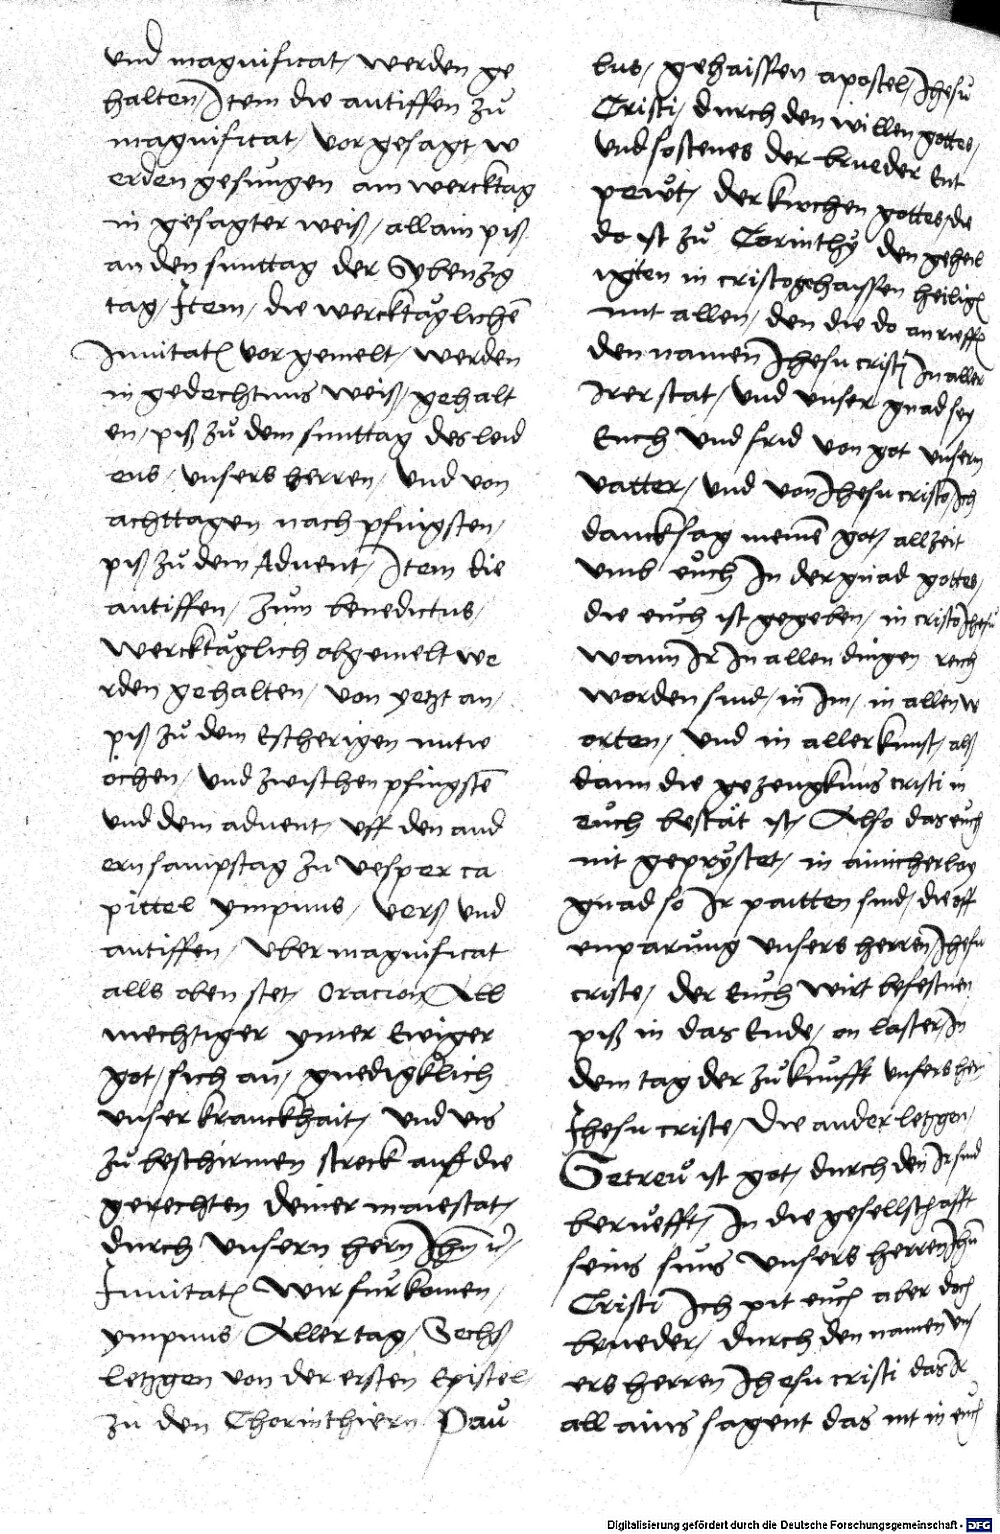 vnd magnificat / werden ge
halten / Item die antiffen zů
magnificat / vor gesagt w
erden gesungen am wercktag
in gesagter weiß / allain piß
an den sunttag der Sybenzig
tag / Item / die wercktäglichē
Inuitat vor gemelt / werden
in gedechtnus weiß / gehalt
en / piß zů dem sunttag des leid
ens / vnsers herren / vnd von
achttagen nach pfingsten /
piß zů dem Aduent / Item die
antiffen / zum benedictus /
wercktäglich obgemelt we
rden gehalten / von yetzt an /
piß zů dem Escherigen mitw
ochen / vnd zwischen pfingstē
vnd dem aduent / vff den and
ern sampstag zu vesper ca
pittel ympnus / verß vnd
antiffen / vber magnificat
alls oben stet / Oracion All
mechtiger ymer Ewiger
got / sich an / gnedigklich
vnser kranckhait / vnd vns
zů beschirmen streck auff die
gerechten deiner maiestat /
durch vnsern hern Jhm
Inuitat Wir fürkomen /
ympnus / Aller tag / Sechs
letzgen von der ersten Epistel /
zu den Chorinthiern Pau
lus / gehaissen apostel / Jhesu
Cristi / durch den willen gottes /
vnd sostenes der brueder Ent
pewt / der kirchen gottes / die
do ist zů Corinthy den geheil
igten in cristo gehaissen heilig
mit allen / den die do an rieff
den namen Jhesu cristi In aller
Irer stat / vnd vnser gnad sey
Euch vnd frid von got vnserm
vatter / vnd von Jhesu cristo Ich
dancksag meinē got / allzeit
vmb euch In der gnad gottes /
die euch ist gegeben / in cristo Jhesu
wann Ir In allen dingen reich
worden sind / in Im / in allen w
orten / vnd in aller kunst / alß
dann die gezeugknus cristi in
euch bestät ist / Also das euch
nit geprystet / in ainicherlay
gnad so Ir paitten sind / die off
enparung vnsers herren Jhesu
criste / der Euch wirt befestnen
piß in das Ende / on laster / In
dem tag der zůkunfft vnsers her
Jhesu criste / Die ander letzgen /
Getrew ist got / durch den Ir sind
berůefft / In die gesellschafft
seins suns vnsers herren Jhū
Cristi Ich pit euch aber doch
brueder / durch den namen vn
ers herren Jhesu cristi das Ir
all ains sagent das nit in euch
Digitalisierung gefördert durch die Deutsche Forschungsgemeinschaft - DFG